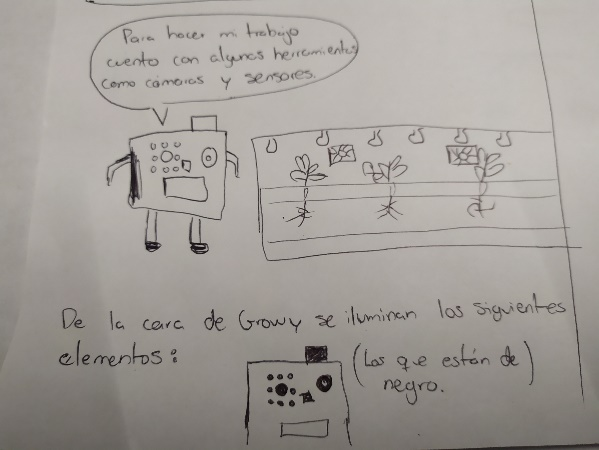 Para hacer mi trabajo
cuento con algunas herramientas
como cámaras y sensores.
De la cara de Growy se iluminan los siguientes
elementos:
(Los que están de
negro.)